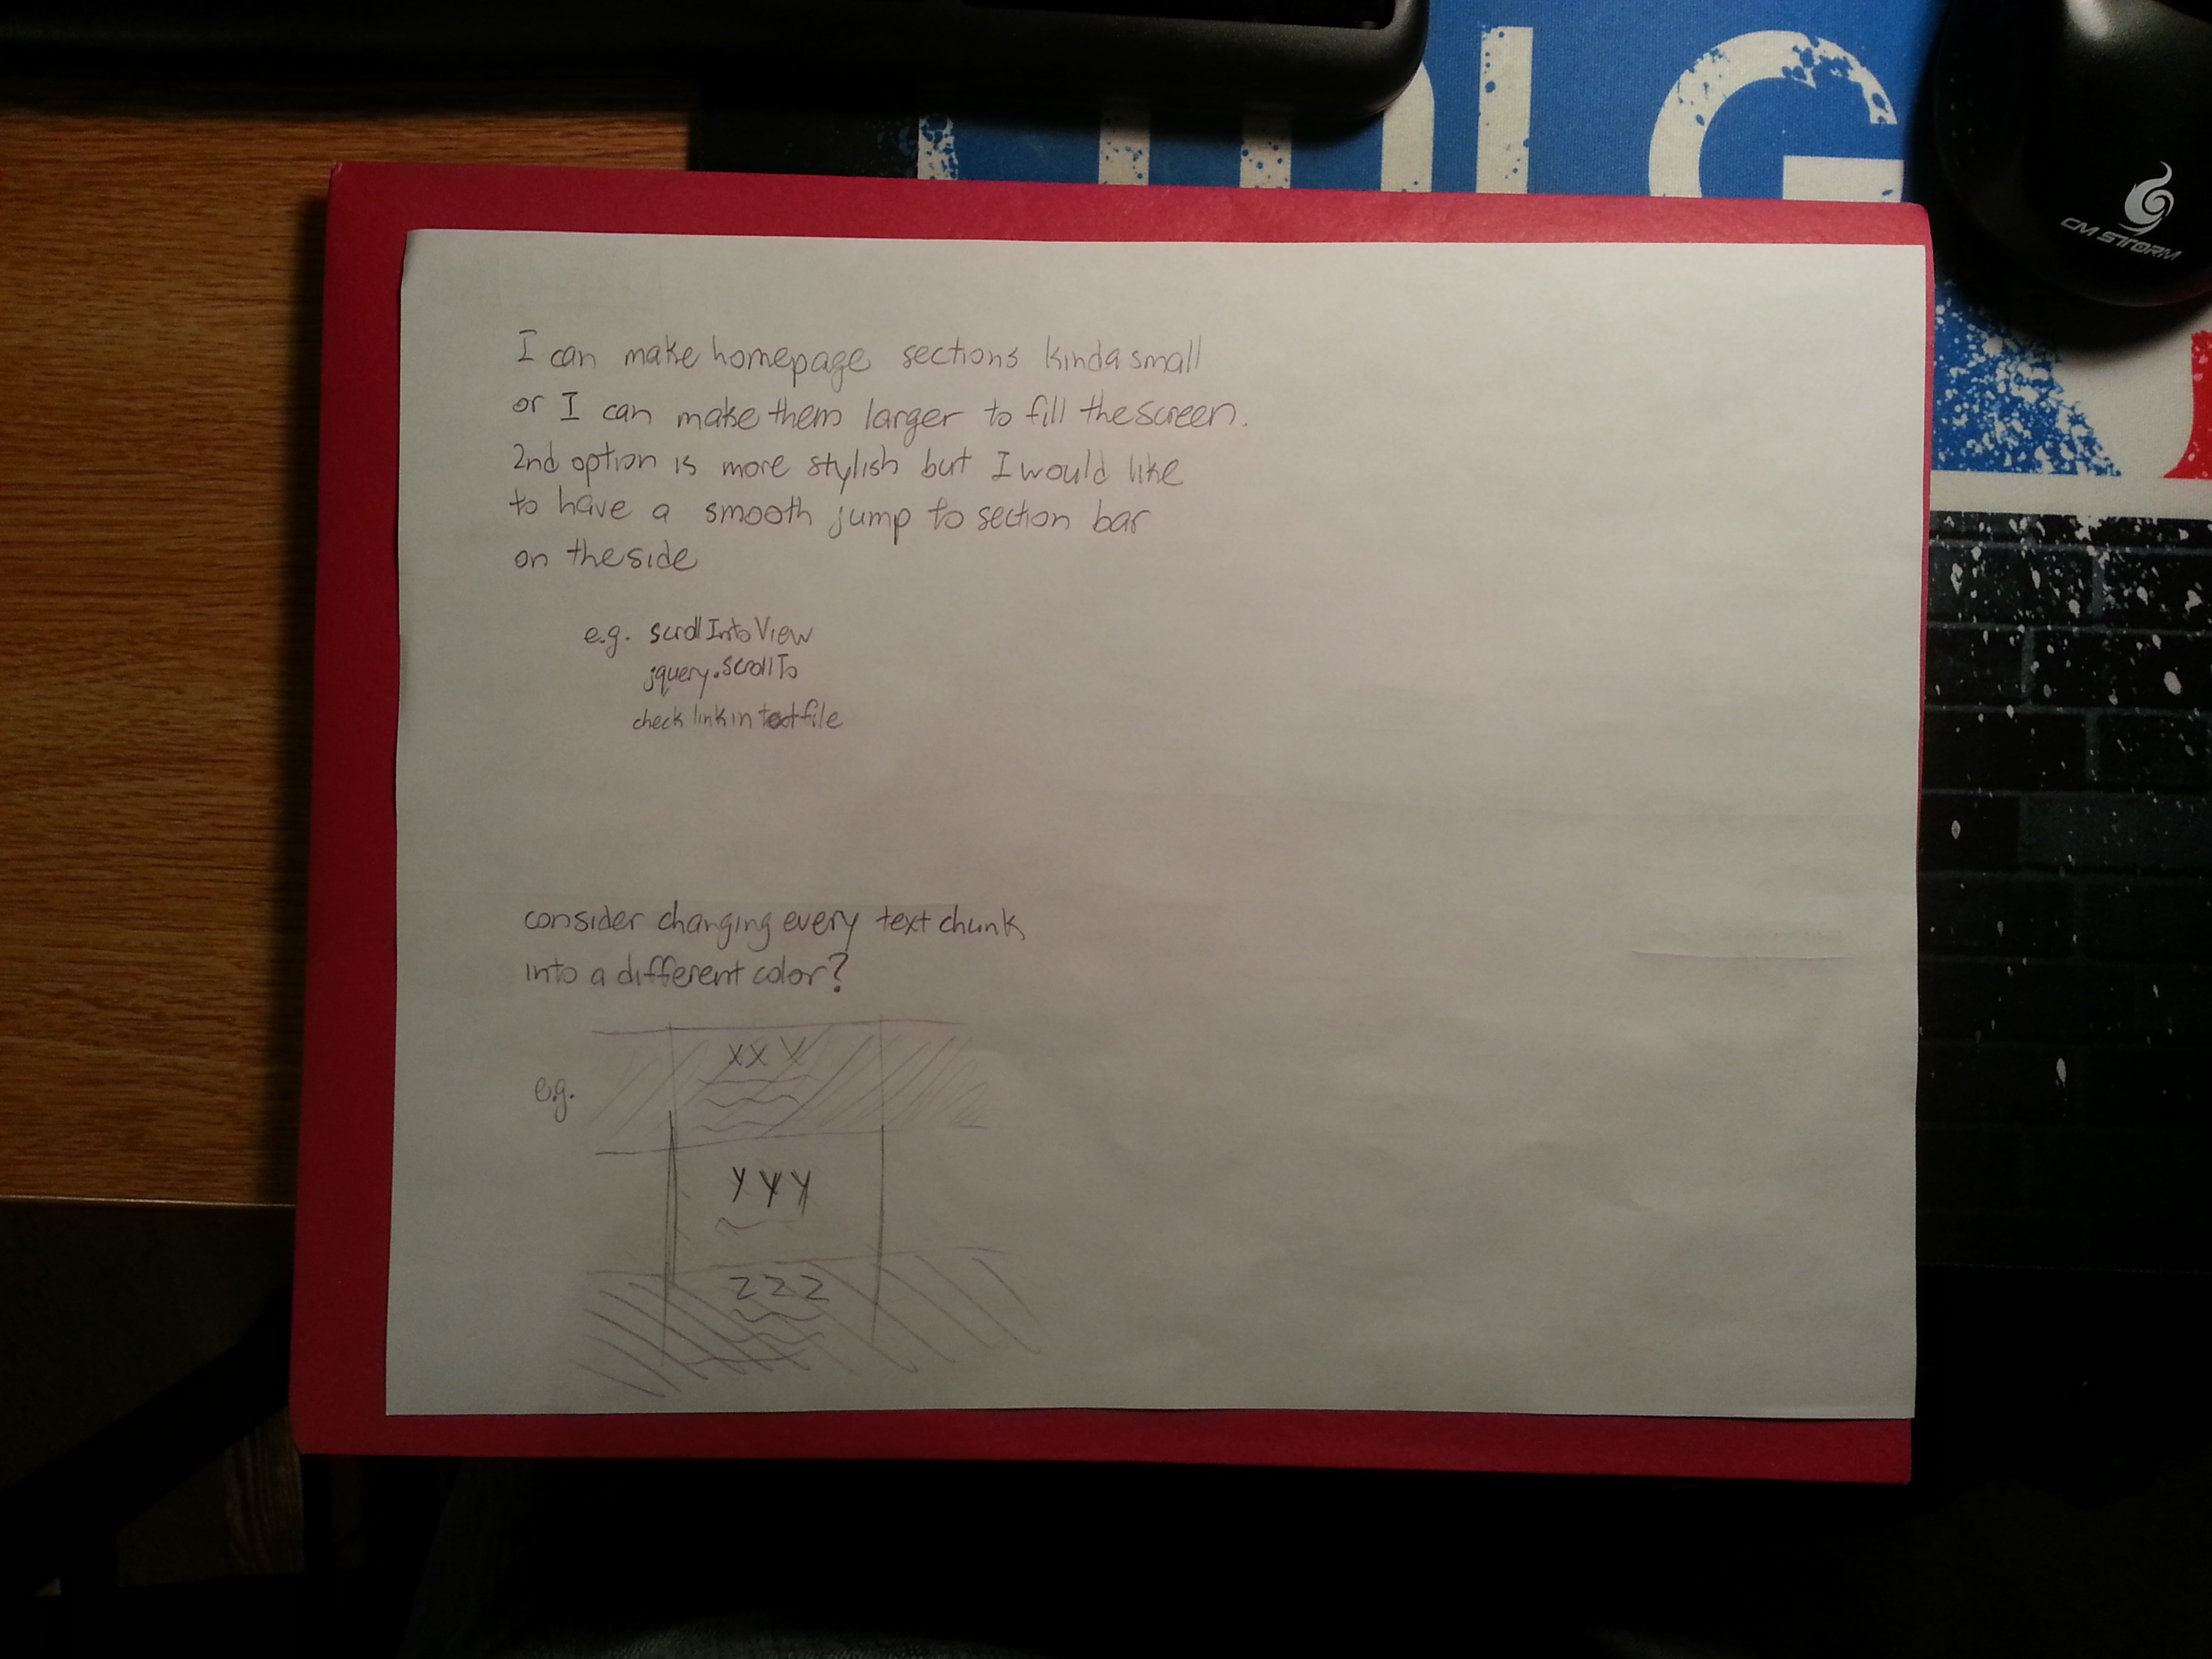 MLG
CM STORM
I can make homepage sections kinda small
or I can make them larger to fill the screen.
2nd option is more stylish but I would like
to have a smooth jump to section bar
on the side
e.g. scrollIntoView
jquery.scrollTo
check link in text file
consider changing every text chunk
into a different color?
e.g.
XXX
YYY
ZZZ